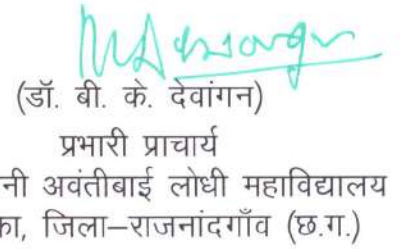 (डॉ. बी. के. देवांगन)
प्रभारी प्राचार्य
नी अवंतीबाई लोधी महाविद्यालय
का, जिला–राजनांदगाँव (छ.ग.)